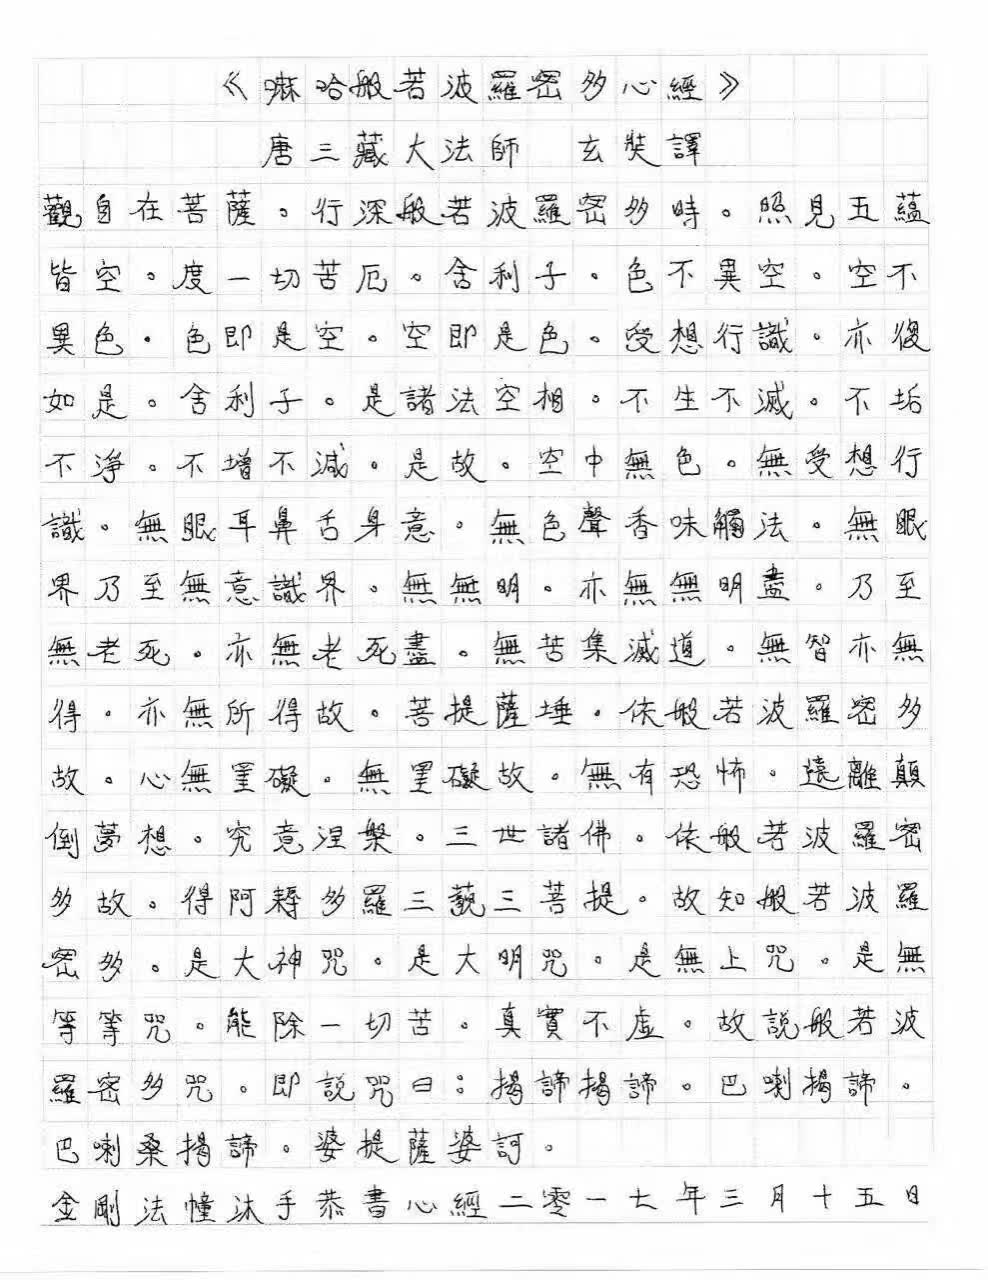 《嘛哈般若波羅密多心經》
唐三藏大法師 玄奘譯
觀自在菩薩。行深般若波羅密多時。照見五蘊
皆空。度一切苦厄。舍利子。色不異空。空不
異色。色即是空。空即是色。受想行識。亦復
如是。舍利子。是諸法空相。不生不滅。不垢
不淨。不增不減。是故。空中無色。無受想行
識。無眼耳鼻舌身意。無色聲香味觸法。無眼
界乃至無意識界。無無明。亦無無明盡。乃至
無老死。亦無老死盡。無苦集滅道。無智亦無
得。亦無所得故。菩提薩埵。依般若波羅密多
故。心無罣礙。無罣礙故。無有恐怖。遠離顛
倒夢想。究竟涅槃。三世諸佛。依般若波羅密
多故。得阿耨多羅三藐三菩提。故知般若波羅
密多。是大神咒。是大明咒。是無上咒。是無
等等咒。能除一切苦。真實不虛。故說般若波
羅密多咒。即說咒曰：揭諦揭諦。巴喇揭諦。
巴喇桑揭諦。婆提薩婆訶。
金剛法幢沐手恭書心經二零一七年三月十五日